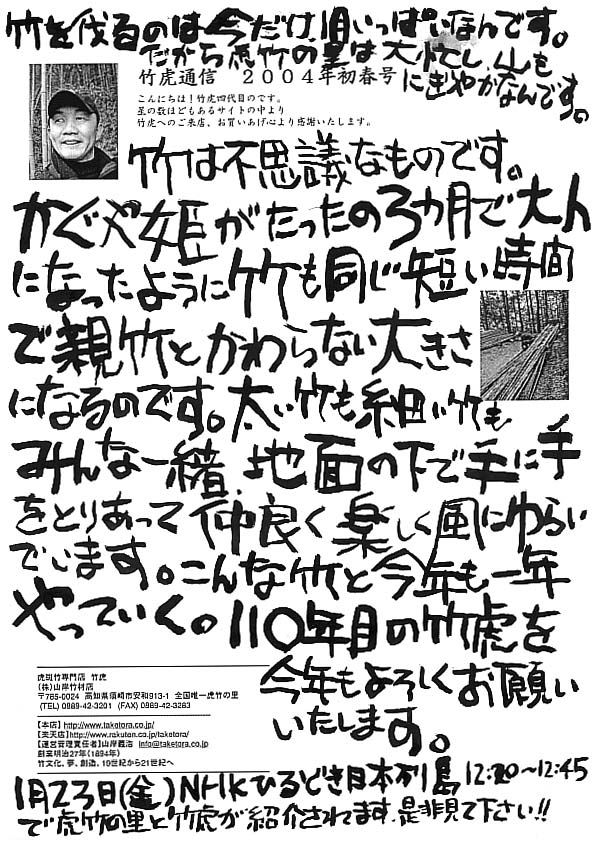 竹を伐るのは今だけ、1月いっぱいなんです。
だから虎竹の里は大忙し、山も
にぎやかなんです。
竹虎通信　2004年初春号
こんにちは！竹虎四代目のです。
星の数ほどもあるサイトの中より
竹虎へのご来店、お買いあげ心より感謝いたします。
竹は不思議なものです。
かぐや姫がたったの3カ月で大人
になったように竹も同じ短い時間
で親竹とかわらない大きさ
になるのです。太い竹も細い竹も
みんな一緒、地面の下で手に手
をとりあって仲良く楽しく風にゆらい
でいます。こんな竹と今年も一年
やっていく。110年目の竹虎を
今年もよろしくお願い
いたします。
虎斑竹専門店 竹虎
(株)山岸竹材店
〒785-0024 高知県須崎市安和913-1 全国唯一虎竹の里
(TEL) 0889-42-3201 (FAX) 0889-42-3283
【本店】http://www.taketora.co.jp/
【楽天店】http://www.rakuten.co.jp/taketora/
【運営管理責任者】山岸義浩 info@taketora.co.jp
創業明治27年(1894年)
竹文化、夢、創造、19世紀から21世紀へ
1月23日(金)NHKひるどき日本列島 12:20～12:45
で虎竹の里と竹虎が紹介されてます、是非見て下さい!!